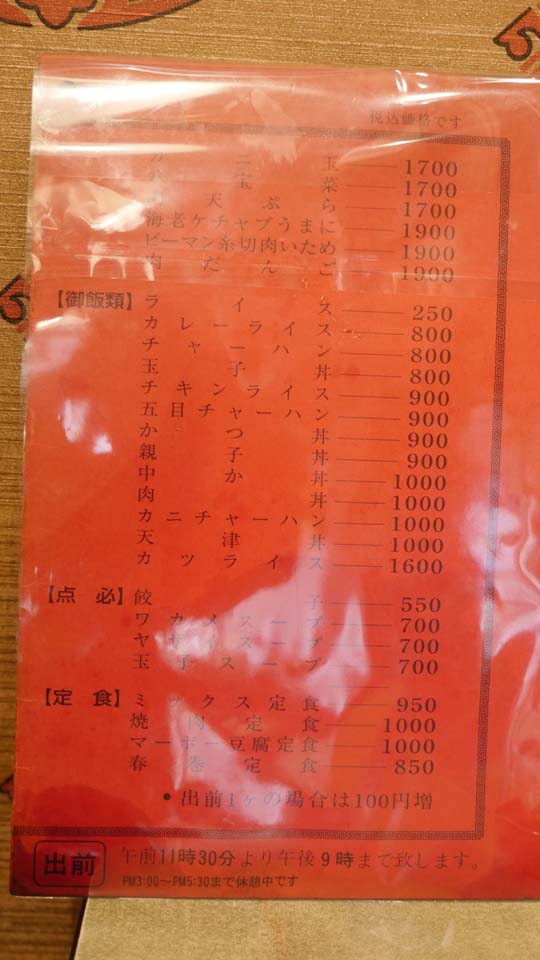 税込価格です
カニ玉 1700
八宝菜 1700
天ぷら 1700
海老ケチャブうまに 1900
ピーマン糸切肉いため 1900
肉だんご 1900
【御飯類】ライス 250
カレーライス 800
チャーハン 800
玉子丼 800
チキンライス 900
五目チャーハン 900
かつ丼 900
親子丼 900
中か丼 1000
肉丼 1000
カニチャーハン 1000
天津丼 1000
カツライス 1600
【点必】餃子 550
ワカメスープ 700
ヤサイスープ 700
玉子スープ 700
【定食】ミックス定食 950
焼肉定食 1000
マーボー豆腐定食 1000
春巻定食 850
・出前1ヶの場合は100円増
出前 午前11時30分より午後9時まで致します。
PM3:00〜PM5:30まで休憩中です